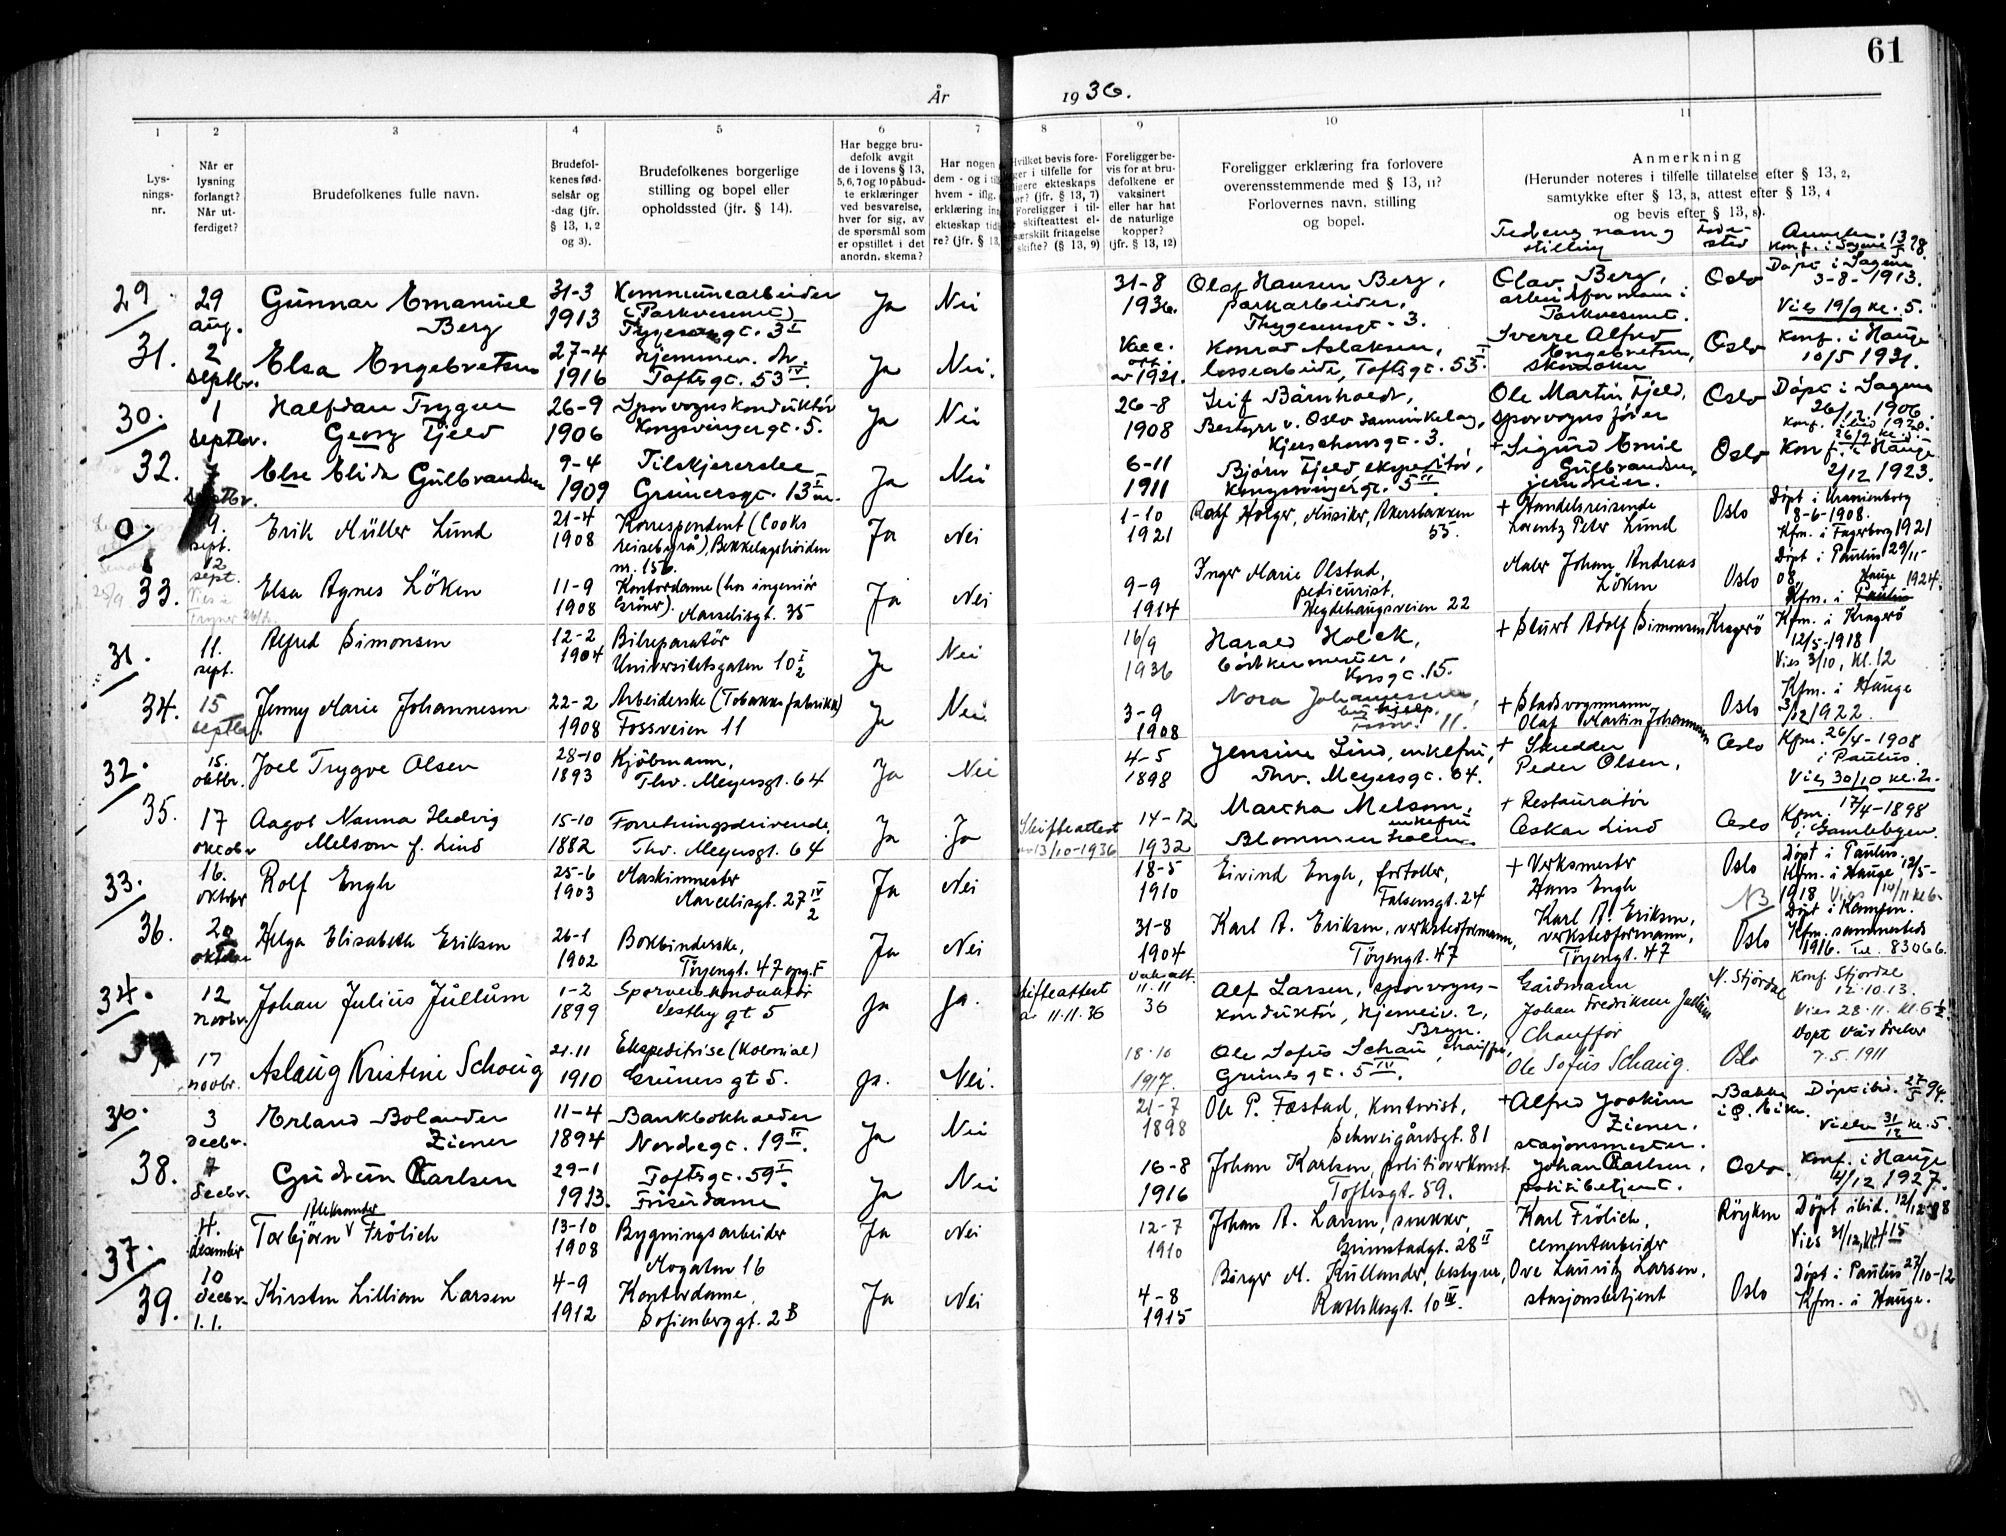 61
År 1936.
1 2 3 4 5 6 7 8 9 10 11
Lys-
nings-
nr.
Når er
lysning
forlangt?
Når ut-
ferdiget?
Brudefolkenes fulle navn.
Brudefol-
kenes fød-
selsår og
-dag (jfr.
§ 13, 1, 2
og 3).
Brudefolkenes borgerlige
stilling og bopel eller
opholdssted (jfr. § 14).
Har begge bru-
defolk avgit
de i lovens § 13,
5, 6, 7 og 10 påbud-
te erklæringer
ved besvarelse,
hver for sig, av
de spørsmål som
er opstillet i det
anordn. skema?
Har nogen
dem - og i til
hvem - iflg.
erklæring in
ekteskap tid
re? (jfr. § 13,
Hvilket bevis fore-
ger i tilfelle for
ligere ekteskaps
or? (jfr. § 13, 7)
Foreligger i til-
skifteattest el-
særskilt fritagelse
skifte? (§ 13, 9)
Foreligger be-
vis for at bru-
defolkene er
vaksinert
eller har hat
de naturlige
kopper?
(jfr. § 13, 12)
Foreligger erklæring fra forlovere
overensstemmende med § 13, 11?
Forlovernes navn, stilling
og bopel.
Anmerkning
(Herunder noteres i tilfelle tillatelse efter § 13, 2,
samtykke efter § 13, 3, attest efter § 13, 4
og bevis efter § 13, 8).
Fedrenes navn og
stilling
Føde-
sted
29 29 Gunnar Emanuel 31-3 Kommunearbeider Ja Nei 31-8 Olaf Hansen Berg, Olav Berg, Oslo Døpt i Sagene
aug. Berg 1913 (Parkvesenet) 1936. parkarbeider, arbeidsformann i 3-8-1913.
Thygesensgt. 3. Parkvesenet. Vies 19/9 kl. 5.
31. 2 Elsa Engebretsen 27-4 Hjemmev. dtr. Ja Nei. Konrad Aslaksen, Sverre Alfred Oslo Konf. i Hauge
septbr. 1916 Toftesgt. 53 IV. 1921. lossearbeider, Toftesgt. 53 Engebretsen, 10/5 1931.
30. 1 Halfdan Trygve 26-9 Sporvognskonduktør Ja Nei 26-8 Leif Bårnholdt, Ole Martin Fjeld, Oslo Døpt i Sagene
septbr. Georg Fjeld 1906 Kongsvingergt. 5. 1908 Bestyrer v. Oslo Samvirkelag, sporvognsfører 26/12 1906.
Kjerschowsgt. 3.
32. 7 Else Elida Gulbrandsen 9-4 Tilskjærerske Ja Nei 6-11 Bjørn Fjeld ekspeditør, + Sigurd Emil Oslo Konf. i Hauge
septbr. 1909 Grünersgt. 13 1911 Kongsvingergt. 5 II. Gulbrandsen, 2/12 1923.
jerndreier.
0 9. Erik Müller Lund 21-4 Korrespondent (Cooks Ja Nei 1-10 Rolf Holger, Musiker, Akersbakken + Handelsreisende Oslo Døpt i Uranienborg
sept. 1908 reisebyrå), Bekkelagshøiden 1921 55. Lorentz Peter Lund 8-6-1908.
n. 15b. Kfm. i Fagerborg 1921
33. 12 sept. Elsa Agnes Löken 11-9 Kontordame (hos ingeniör Ja Nei 9-9 Inger Marie Olstad, Maler Johan Andreas Oslo Døpt i Paulus 29/11-
1908 Gröner). Marselisgt. 35 1914 pedicurist. Löken 08. Hauge 1924.
Hegdehaugsveien 22 Kfm. i Paulus
31. 11. Alfred Simonsen 12-2 Bilreparatör Ja Nei 16/9 Harald Holck, + Sivert Adolf Simonsen Kragerö Kfm. i Kragerö
sept. 1904 Universitetsgaten 10 1936 bödkermester, 12/5-1918
Korsgt. 15. Vies 3/10, kl. 12
34. 15 Jenny Marie Johannesen 22-2 Arbeiderske (Tobakksfabrikk) Ja Nei. 3-9 Nora Johannesen, + Stadsvognmann Oslo Kfm. i Hauge
septbr. 1908 Fossveien 11 1908 11. Olaf Martin Johannesen 3/12 1922.
32. 15. Joel Trygve Olsen 28-10 Kjöbmann, Ja Nei 4-5 Jensine Lind, enkefru, + Skredder Oslo Kfm. 26/4-1908
oktbr. 1893 Thv. Meyersgt. 64 1898 Thv. Meyersgt. 64. Peder Olsen, i Paulus.
Vies 30/10 kl. 2.
35. 17 Aagot Nanna Hedvig 15-10 Forretningsdrivende, Ja Ja Skifteattest 14-12 Martha Melsom, + Restauratör Oslo Kfm. 17/4-1898
oktobr Melsom f. Lind 1882 Thv. Meyersgt. 64 av 13/10-1936 1932 enkefru Oskar Lind i Gamlebyen.
Blommenholm.
33. 16. Rolf Engh 25-6 Maskinmester Ja Nei 18-5 Eivind Engh, fortoller, + Verksmester Oslo Døpt i Paulus.
oktober 1903 Marcelisgt. 27 IV 2 1910 Falsensgt. 24 Hans Engh NB Kfm. i Hauge 12/5-
1918 Vies 14/11 kl 6-
36. 20 Helga Elisabeth Eriksen 26-1 Bokbinderske, Ja Nei 31-8 Karl A. Eriksen, verkstedformann, Karl A. Eriksen, Oslo Døpt i Kampen.
oktober 1902 Töyengt. 47 opg. F 1904 Töyengt. 47 verkstedformann, Kfm. sammesteds
Töyengt. 47 1916. Tel. 83066.
34. 12 Johan Julius Jullum 1-2 Sporveiskonduktör Ja Ja. Skifteattest 11.11 Alf Larsen, sporvogns- Gårdmann N. Stjördal Konf. Stjordal
novbr. 1899 Vestby gt 5 av 11.11.36 36 konduktör, Hjemvei. 2, Johan Fredriksen Jullum 12.10.13.
Bryn. Vies 28.11. kl. 6½
17 Aslaug Kristine Schoug 21.11 Ekspeditrise (Kolonial) Ja. Nei. 18.10 Ole Sofus Schau, chauffør, Chauffør Oslo Døpt Vår Frelser
novbr. 1910 Grüners gt 5. 1917. Grünersgt. 5 IV. Ole Sofus Schaug. 7.5.1911
36. 3 Erland Bolander 11-4 Bankbokholder Ja Nei 21-7 Ole P. Fæstad, kontorist, + Alfred Joakim Bakke Døpt ibid.
decbr. Ziener 1894 Nordregt. 19 II. 1898 Schweigårdsgt. 81 Ziener. Vielse 31/12 kl. 5.
stasjonsmester.
38. 7 Gudrun Karlsen 29-1 Toftesgt. 59 I. Ja Nei 16-8 Johan Karlsen, politioverkonst. Johan Karlsen, Oslo. Konf. i Hauge
decbr. 1913. Frisørdame 1916 Toftesgt. 59. politibetjent. 4/12 1927.
37. 4. Torbjörn Aleksander Frölich 13-10 Bygningsarbeider Ja Nei 12-7 Johan A. Larsen, snekker, Karl Frölich, Röyken Døpt ibid. 12/12-08
desember 1908 Mogaten 16 1910 Grimstadgt. 28 II cementarbeider Vies 31/12, kl. 4 15
39. 10 Kirsten Lillian Larsen 4-9 Kontordame, Ja Nei 4-8 Birger M. Kullander, bestyrer, Ove Lauritz Larsen, Oslo Døpt i Paulus 27/10-12
decbr. 1912 Sofienberggt. 2B 1915 Rathkesgt. 10 IV. stasjonsbetjent Kfm. i Hauge.
1.1.